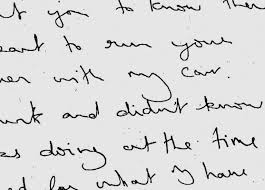 t you to know that
eant to run your
er with my car.
unk and didn't know
as doing at the time
ed for what I have